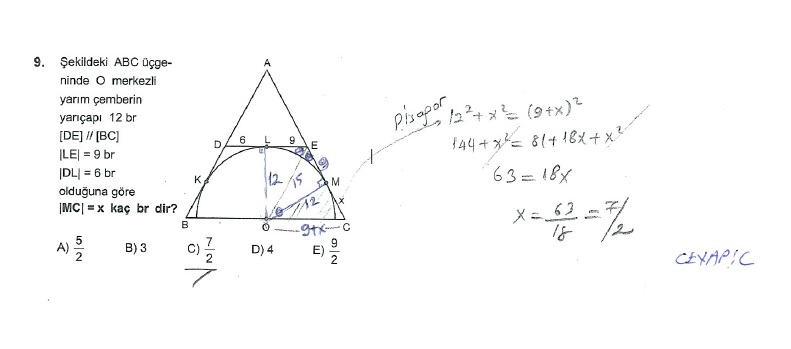 9. Şekildeki ABC üçge-
ninde O merkezli
yarım çemberin
yarıçapı 12 br
[DE] // [BC]
|LE| = 9 br
|DL| = 6 br
olduğuna göre
|MC| = x kaç br dir?
A) 5/2 B) 3 C) 7/2 D) 4 E) 9/2
A
D 6 L 9 E
9
K 12 15 M
12 x
B O 9+x C
Pisagor 12² + x² = (9+x)²
144 + x² = 81 + 18x + x²
63 = 18x
x = 63/18 = 7/2
CEVAP: C